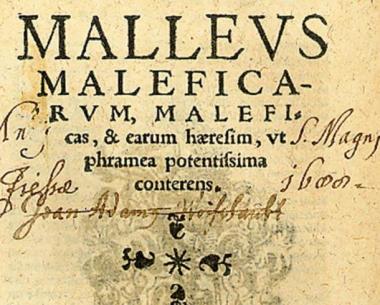 MALLEVS
MALEFICA-
RVM, MALEFI-
cas, & earum hæresim, vt
phramea potentissima
conterens.
S. Magni
Jean Adam